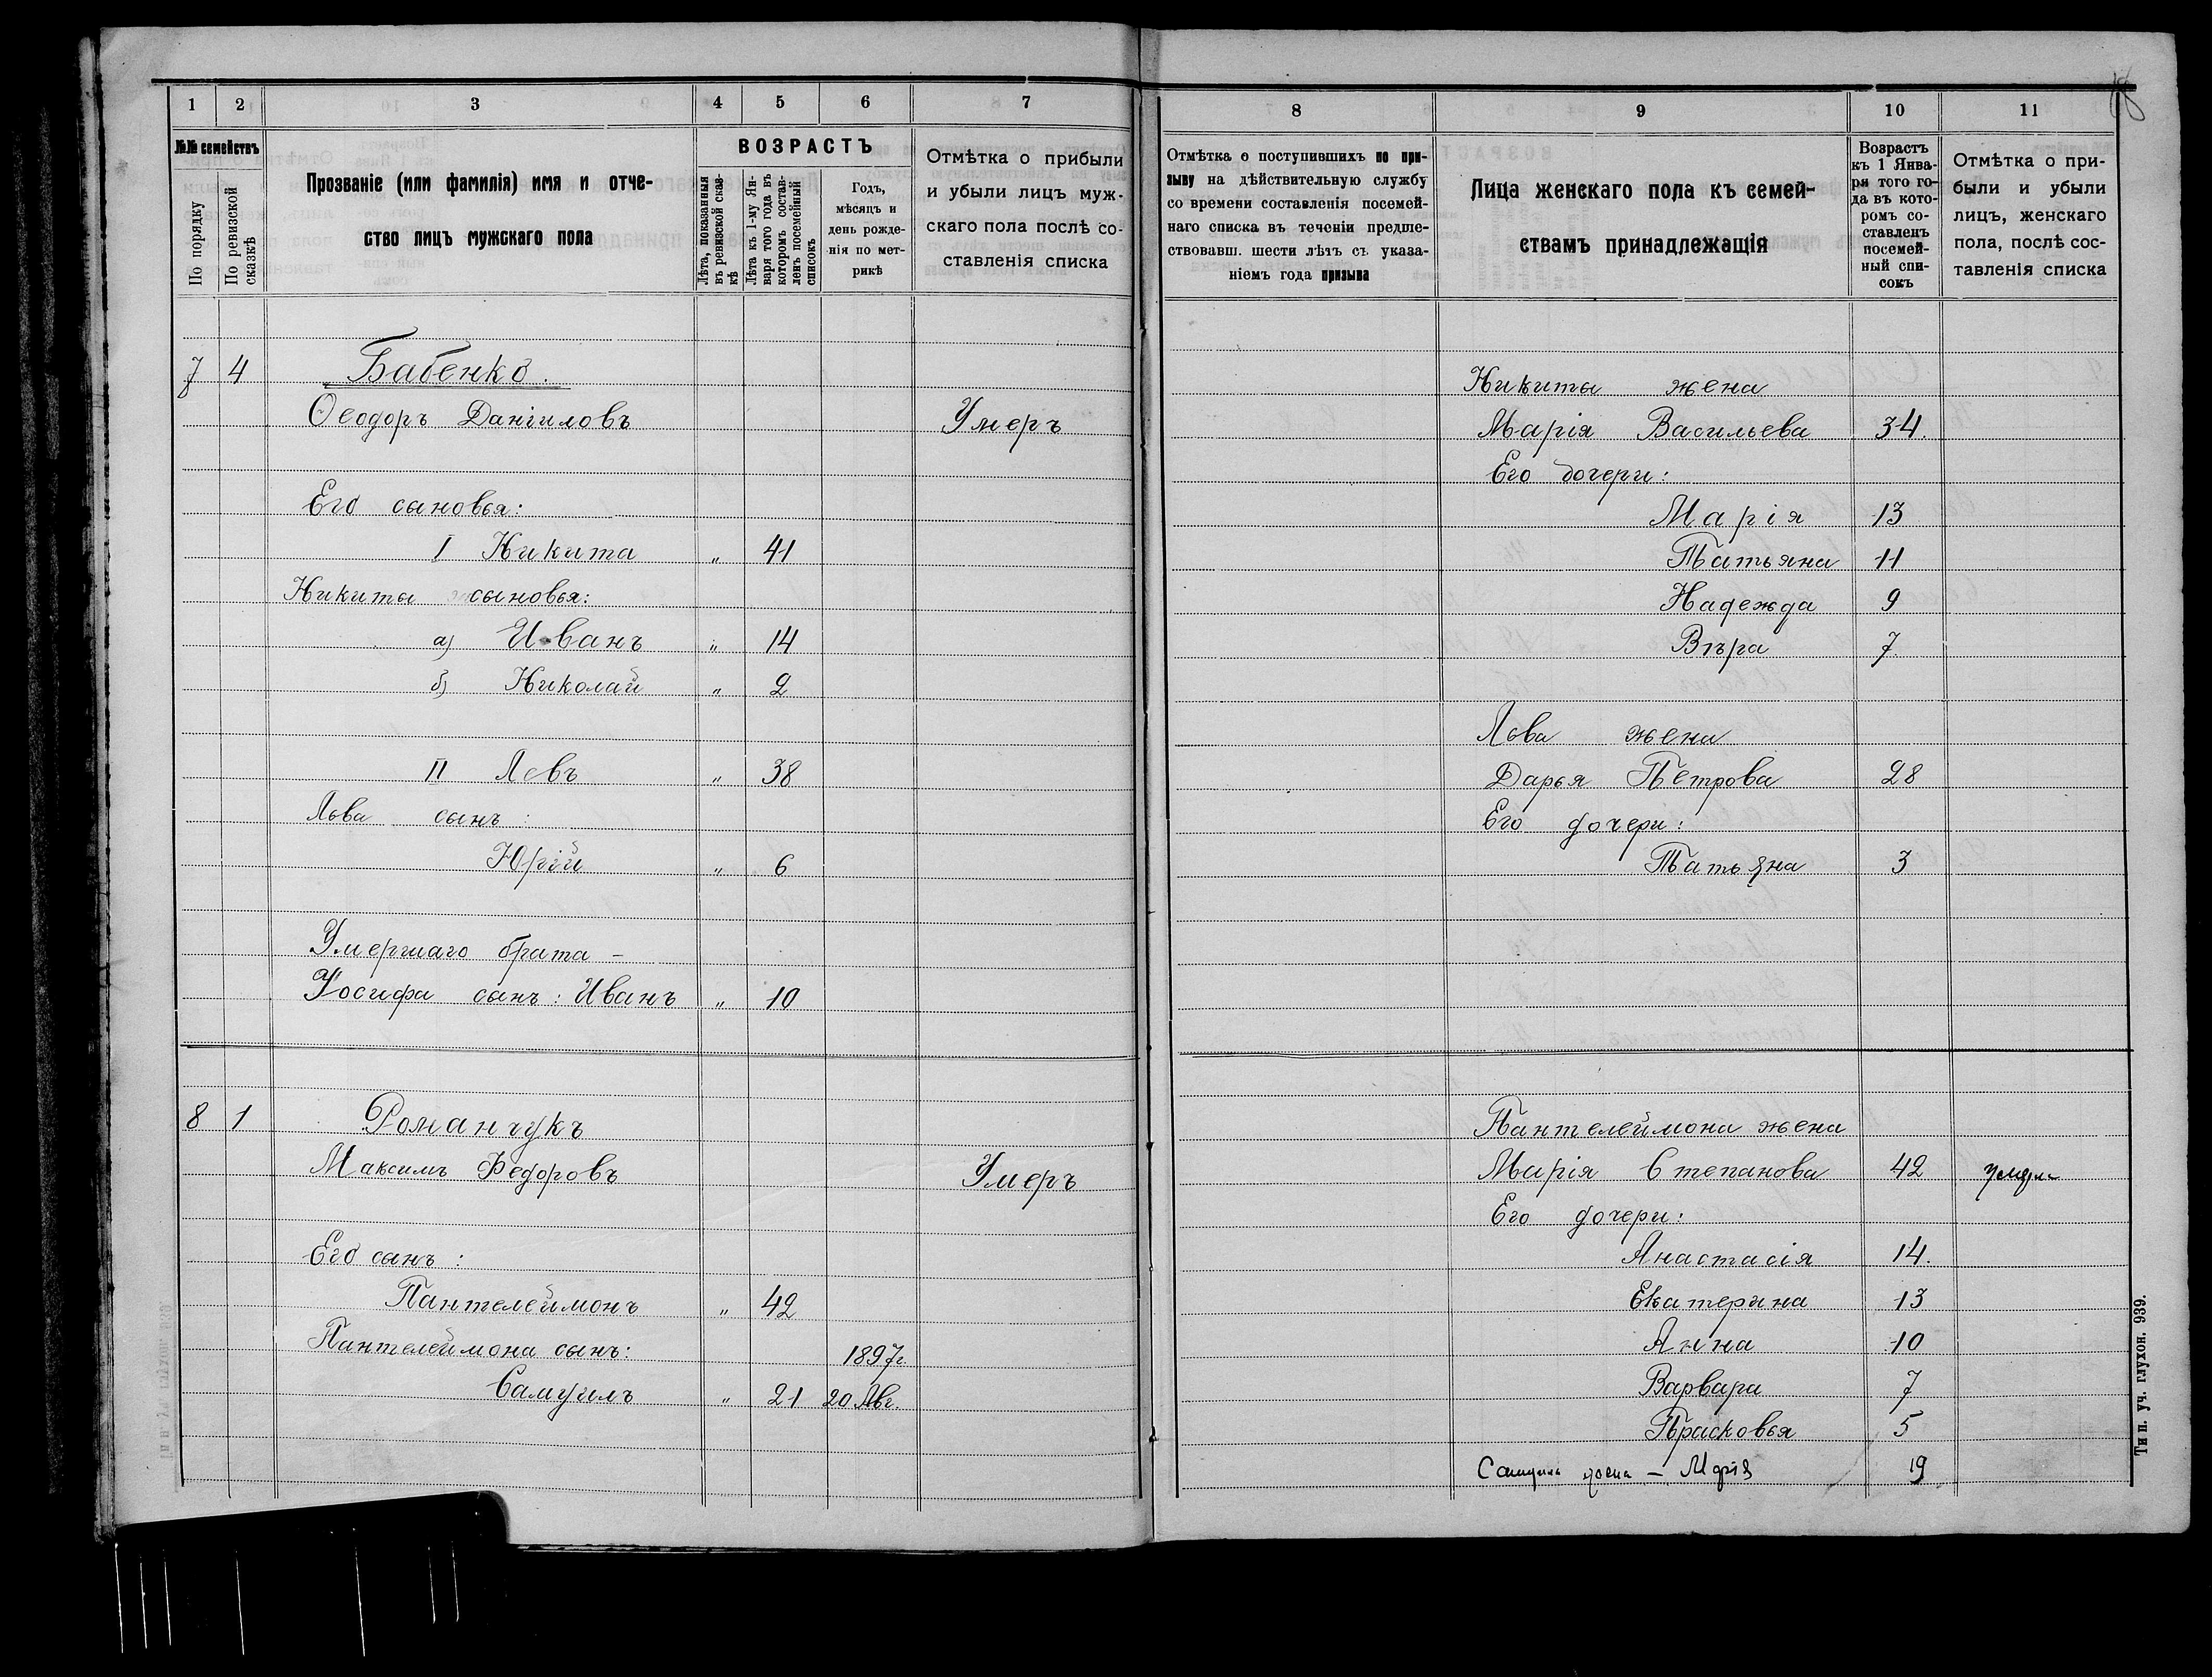 1 2 3 4 5 6 7
№№ семействъ
По порядку
По ревизской сказкѣ
Прозваніе (или фамилія) имя и отче-
ство лицъ мужскаго пола
ВОЗРАСТЪ
Лѣта, показанныя
въ ревизской сказ-
кѣ
Лѣта къ 1-му Ян-
варя того года въ
которомъ состав-
ленъ посемейный
списокъ
Годъ,
мѣсяцъ и
день рожде-
нія по мет-
рикѣ
Отмѣтка о прибыли
и убыли лицъ муж-
скаго пола послѣ со-
ставленія списка
7 4 Бабенко.
Ѳеодоръ Даніиловъ Умеръ
Его сыновья:
I Никита „ 41
Никиты сыновья:
а) Иванъ „ 14
б) Николай „ 2
II Левъ „ 38
Льва сынъ:
Юрій „ 6
Умершаго брата –
Іосифа сынъ: Иванъ „ 10
8 1 Романчукъ
Максимъ Федоровъ Умеръ
Его сынъ:
Пантелеймонъ „ 42
Пантелеймона сынъ: 1897г.
Самуилъ „ 21 20 Авг.
8 9 10 11
Отмѣтка о поступившихъ по при-
зыву на дѣйствительную службу
со времени составленія посемей-
наго списка въ теченіи предше-
ствовавш. шести лѣтъ съ указа-
ніемъ года призыва
Лица женскаго пола къ семей-
ствамъ принадлежащія
Возрастъ
къ 1 Янва-
ря того го-
да въ кото-
ромъ со-
ставленъ
посемей-
ный спи-
сокъ
Отмѣтка о при-
были и убыли
лицъ, женскаго
пола, послѣ сос-
тавленія списка
Никиты жена
Марія Васильева 34.
Его дочери:
Марія 13
Татьяна 11
Надежда 9
Вѣра 7
Льва жена
Дарья Петрова 28
Его дочери:
Татьяна 3
Пантелеймона жена
Марія Степанова 42
Его дочери:
Анастасія 14.
Екатерина 13
Анна 10
Варвара 7
Прасковья 5
Самуила жена – Марія 19
Тип. уч. глухон. 939.